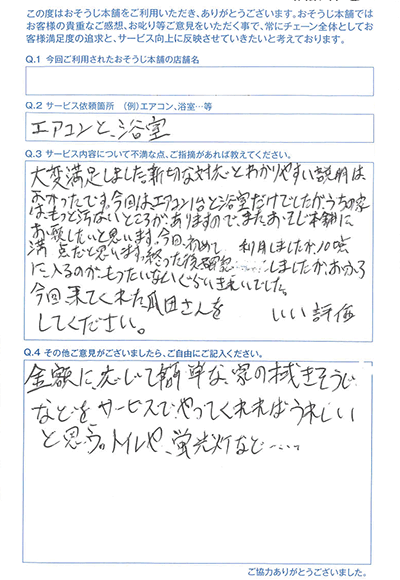 この度はおそうじ本舗をご利用いただき、ありがとうございます。おそうじ本舗では
お客様の貴重なご感想、お叱り等ご意見をいただく事で、常にチェーン全体としてお
客様満足度の追求と、サービス向上に反映させていきたいと考えております。
Q.1 今回ご利用されたおそうじ本舗の店舗名
Q.2 サービス依頼箇所 (例)エアコン、浴室…等
エアコンと、浴室
Q.3 サービス内容について不満な点、ご指摘があれば教えてください。
大変満足しました。親切な対応とわかりやすい説明は
よかったです。今回はエアコン1台と浴室だけでしたが、うちの家
はもっと汚ないところがありますので、またおそうじ本舗に
お願いしたいと思います。今回、初めて 利用しましたが、100点
満点だと思います。終った後確認 しましたが、お風ろ
に入るのが、もったいないぐらいきれいでした。
今回来てくれた瓜田さんを いい評価
してください。
Q.4 その他ご意見がございましたら、ご自由にご記入ください。
金額に応じて簡単な家の拭きそうじ
などを、サービスでやってくれればうれしい
と思う。トイレや、蛍光灯など……
ご協力ありがとうございました。